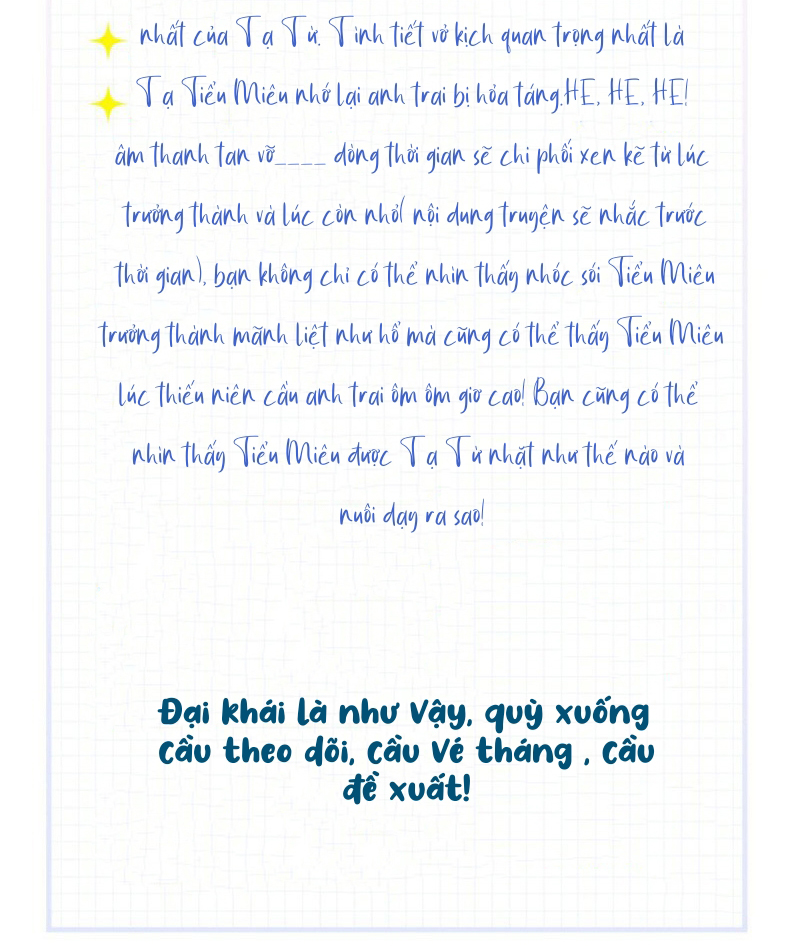 nhất của Tạ Từ. Tình tiết vở kịch quan trọng nhất là
Tạ Tiểu Miêu nhớ lại anh trai bị hỏa táng.HE, HE, HE!
âm thanh tan vỡ____ dòng thời gian sẽ chi phối xen kẽ từ lúc
trưởng thành và lúc còn nhỏ( nội dung truyện sẽ nhắc trước
thời gian), bạn không chỉ có thể nhìn thấy nhóc sói Tiểu Miêu
trưởng thành mãnh liệt như hổ mà cũng có thể thấy Tiểu Miêu
lúc thiếu niên cầu anh trai ôm ôm giơ cao! Bạn cũng có thể
nhìn thấy Tiểu Miêu được Tạ Từ nhặt như thế nào và
nuôi dạy ra sao!
Đại khái là như vậy, quỳ xuống
cầu theo dõi, cầu vé tháng , cầu
đề xuất!